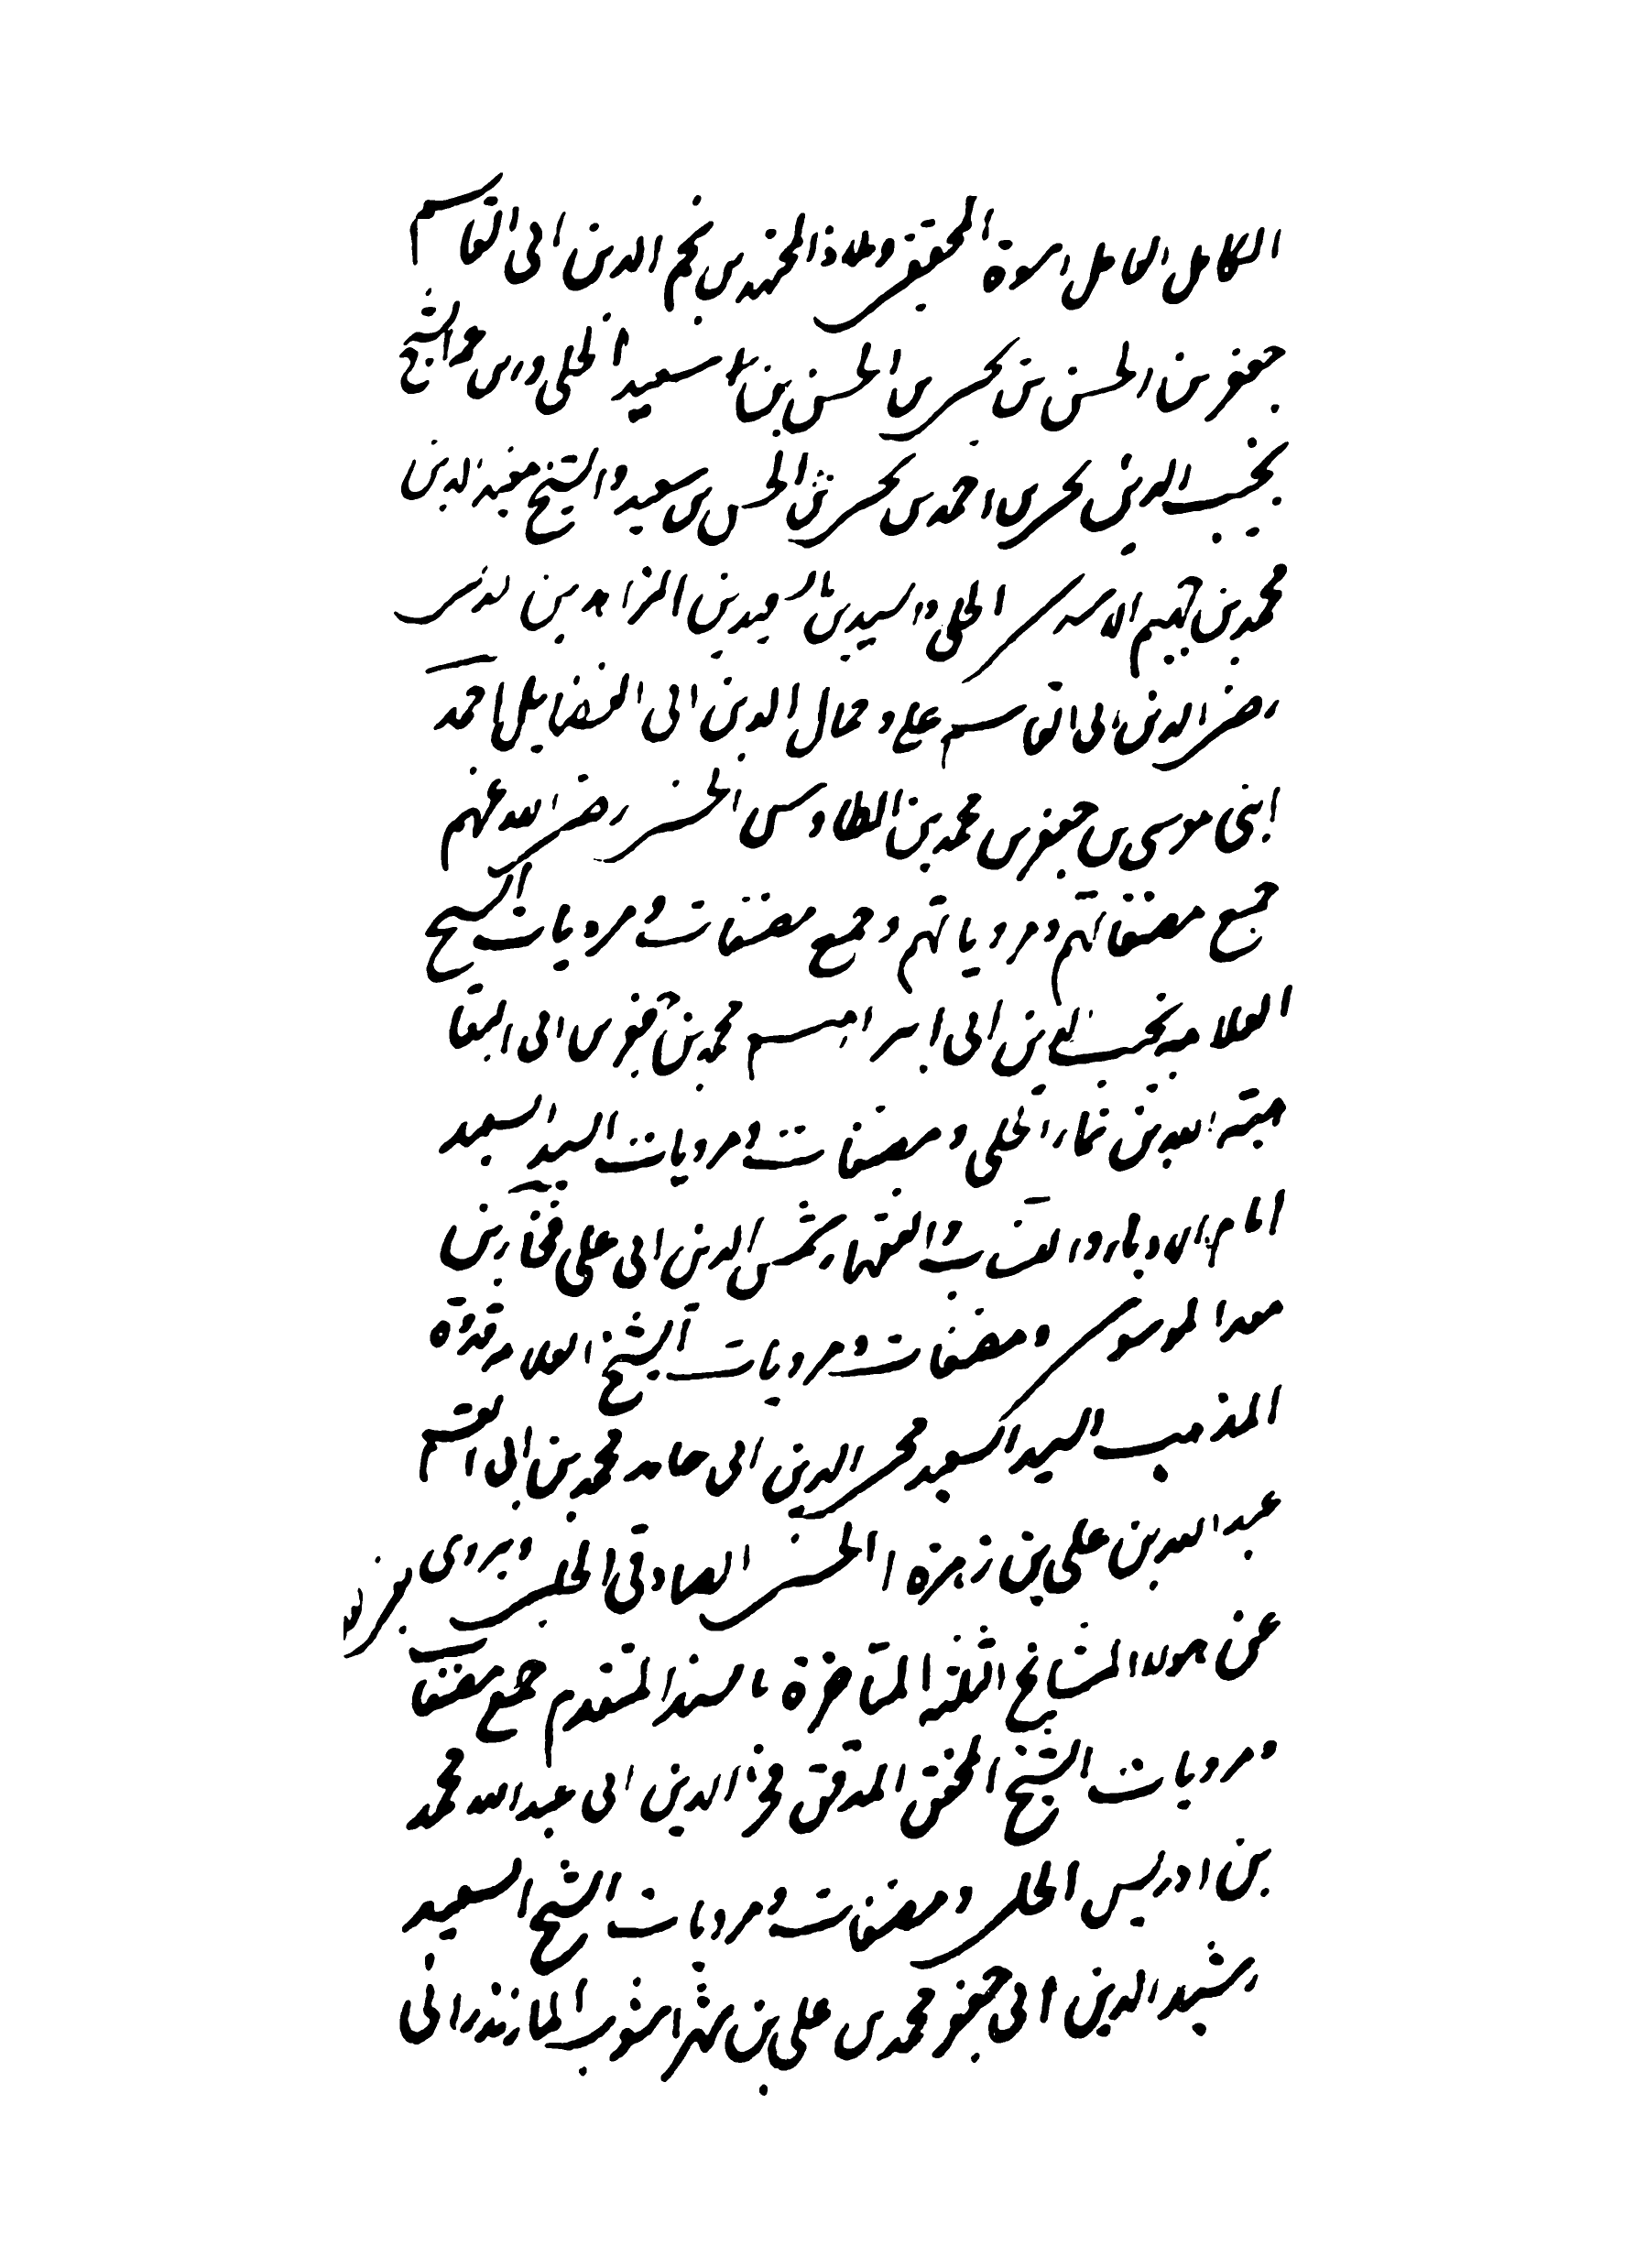 الكامل الفاضل اسوة المحققين وملاذ المجتهدين نجم الدين ابى القاسم
جعفر بن الحسن بن يحيى بن الحسن بن سعيد الحلى وابن عمه الشيخ
نجيب الدين يحيى بن احمد بن يحيى بن الحسن بن سعيد والشيخ مفيد الدين
محمد بن جهيم الاسدى الحلى والسيدين السعيدين الزاهدين
رضى الدين ابى القاسم على وجمال الدين ابى الفضايل احمد
ابنى موسى بن جعفر بن محمد بن الطاوس الحسنى رضى الله عنهم
جميع مصنفاتهم ومروياتهم وجميع مصنفات ومرويات الشيخ
العلامة نجيب الدين ابى ابراهيم محمد بن جعفر بن ابى البقا
هبة الله بن نما الحلى ومصنفات ومرويات السيد السعيد
امام الادباء والنساب والفقهاء شمس الدين ابى على فخار بن
معد الموسوى ومصنفات ومرويات الشيخ العلامة قدوة
المذهب السيد السعيد محيى الدين ابى حامد محمد بن ابى القسم
عبد الله بن على بن زهرة الحسنى الصادقى الحلبى ويروى
عن هولاء المشايخ الثلثة المتاخرة بالسند المتقدم جميع مصنفات
ومرويات الشيخ المحقق المدقق فخر الدين ابى عبد الله محمد
بن ادريس الحلى ومصنفات ومرويات الشيخ السعيد
رشيد الدين ابى جعفر محمد بن على بن شهراشوب المازندرانى